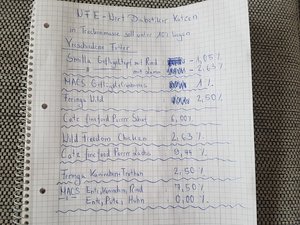 NFE-Wert Diabetiker Katzen
in Trockenmasse soll unter 10% liegen
Verschiedene Futter
Smilla Geflügeltopf mit Rind - 1,05%
" mit - 2,63%
MACS 1%
Feringa Wild 2,50%
Catz finefood Purrrr 6,00%
Wild Freedom Chicken 2,63%
Catz finefood Purrrr
Feringa Kaninchen + Truthahn 2,50%
MACS Ente, Kaninchen, Rind 7,50%
Ente, Pute, Huhn 0,00%